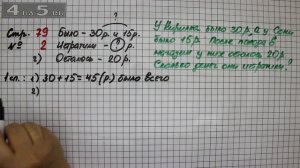 4 на 5
Стр. 79 Было - 30 р. и 15 р.
№ 2 Истратили - ? р.
2) Осталось - 20 р.
?
У Кирилла было 30 р., а у Сони
было 15 р. После похода в
магазин у них осталось 20 р.
Сколько денег они истратили?
1 сп.: 1) 30 + 15 = 45 (р.) было всего
2)